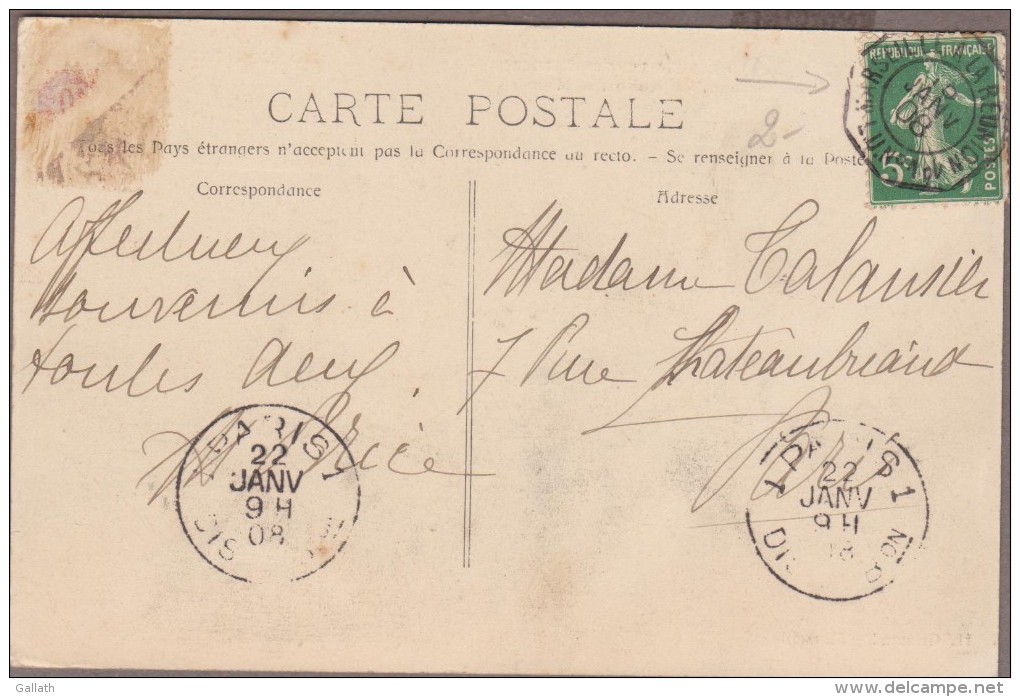 CARTE POSTALE
Tous les Pays étrangers n'acceptent pas la Correspondance au recto. - Se renseigner à la Poste
Correspondance
Adresse
REPUBLIQUE FRANÇAISE
5
POSTES
MARSEILLE A LA REUNION
JANV
08
2-
souvenirs à
toutes deux.
Madame Talansier
7 Rue Chateaubriand
Paris
PARIS 1
22
JANV
9 H
08
PARIS 1
22
JANV
9 H
Gallath
delcampe.net